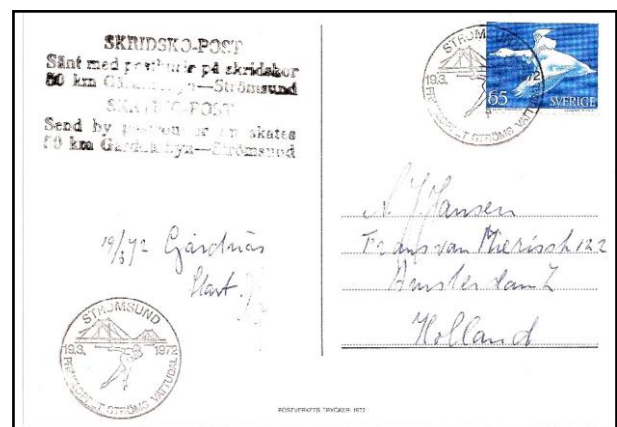 SKRIDSKO-POST
Sänt med postburir på skridskor
50 km Gärdnäsbyn—Strömsund
SKATING-POST
Send by on skates
50 km Gärdnäsbyn—Strömsund
19/3 72 Gärdnäs
Start
STRÖMSUND
19.3. 1972
FRIKLOPPET STRÖMS VATTUDAL
STRÖMSUND
19.3. 1972
STRÖMS VATTUDAL
65 SVERIGE
N J Jansen
Frans van Mierisstr 122
Amsterdam Z
Holland
POSTVERKETS TRYCKERI 1972